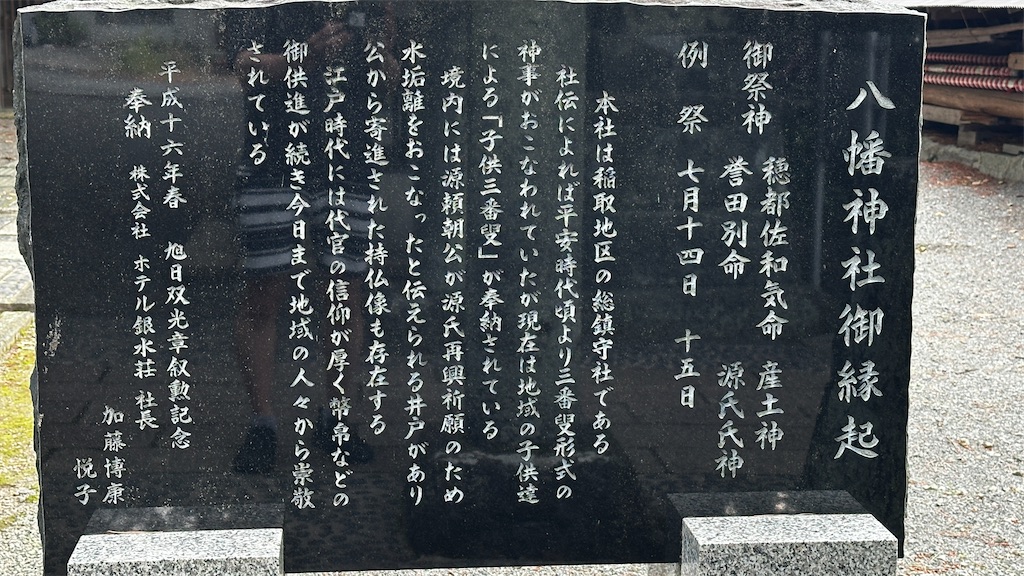 八幡神社御縁起
御祭神 穂都佐和気命 産土神
誉田別命 源氏氏神
例 祭 七月十四日 十五日
本社は稲取地区の総鎮守社である
社伝によれば平安時代頃より三番叟形式の
神事がおこなわれていたが現在は地域の子供達
による「子供三番叟」が奉納されている
境内には源頼朝公が源氏再興祈願のため
水垢離をおこなったと伝えられる井戸があり
公から寄進された持仏像も存在する
江戸時代には代官の信仰が厚く幣帛などの
御供進が続き今日まで地域の人々から崇敬
されている
平成十六年春 旭日双光章叙勲記念
奉納 株式会社 ホテル銀水荘 社長
加藤博康
悦子